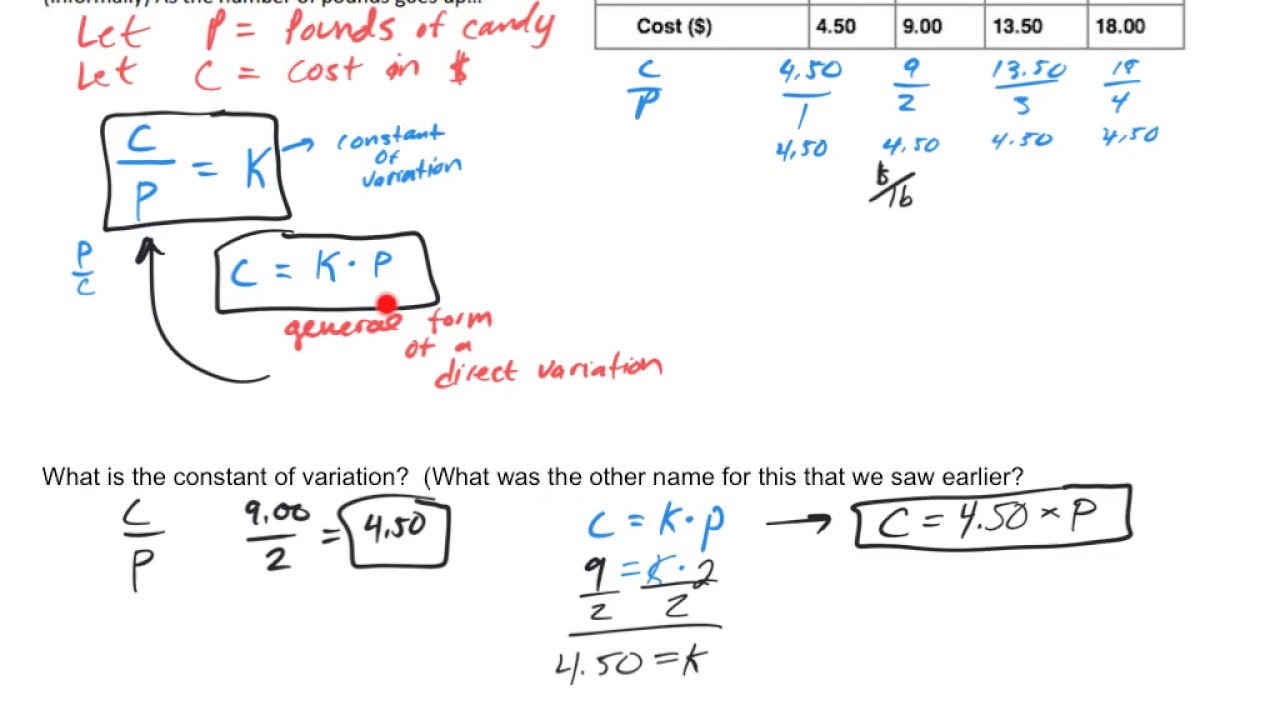 (informally) As the number of pounds goes up...
Let P = Pounds of candy
Let C = cost in $
Cost ($) 4.50 9.00 13.50 18.00
C/P 4.50/1 9/2 13.50/3 18/4
4.50 4.50 4.50 4.50
$/lb
C/P = K → constant
of
variation
P/C
C = K · P
general form
of a
direct variation
What is the constant of variation? (What was the other name for this that we saw earlier?
C/P 9.00/2 = 4.50
C = K · P → C = 4.50 × P
9/2 = K · 2/2
4.50 = K